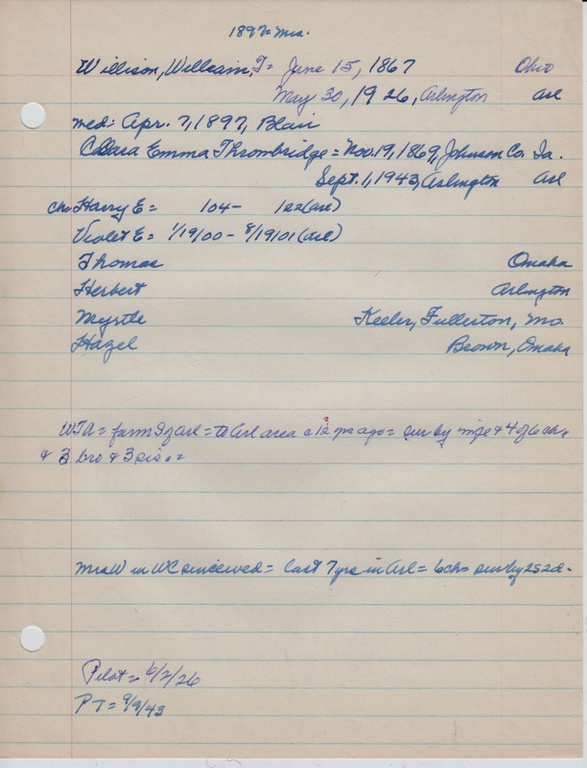 1892 Mrs.
Willison, William, T = June 15, 1867 Ohio
May 30, 1926, Arlington Arl
med: Apr. 7, 1897, Blair
Clara Emma Thrombridge = Nov. 19, 1869, Johnson Co. Ia.
Sept. 1, 1943, Arlington Arl
ch Harry E = 104 - 122 (Arl)
Violet E = 1/19/00 - 8/19/01 (Arl)
Thomas Omaha
Herbert Arlington
Myrtle Keeler, Fullerton, Mo.
Hazel Brown, Omaha
farm Arl = to Arl area a 12 yrs ago = sur by wife & 4 of 6 ch,
& 3 bro & 3 sis. =
Mrs W in WC since wed = last 7 yrs in Arl = 6 ch = sur by 2s 2d.
Pilot = 6/2/26
PT = 9/9/43